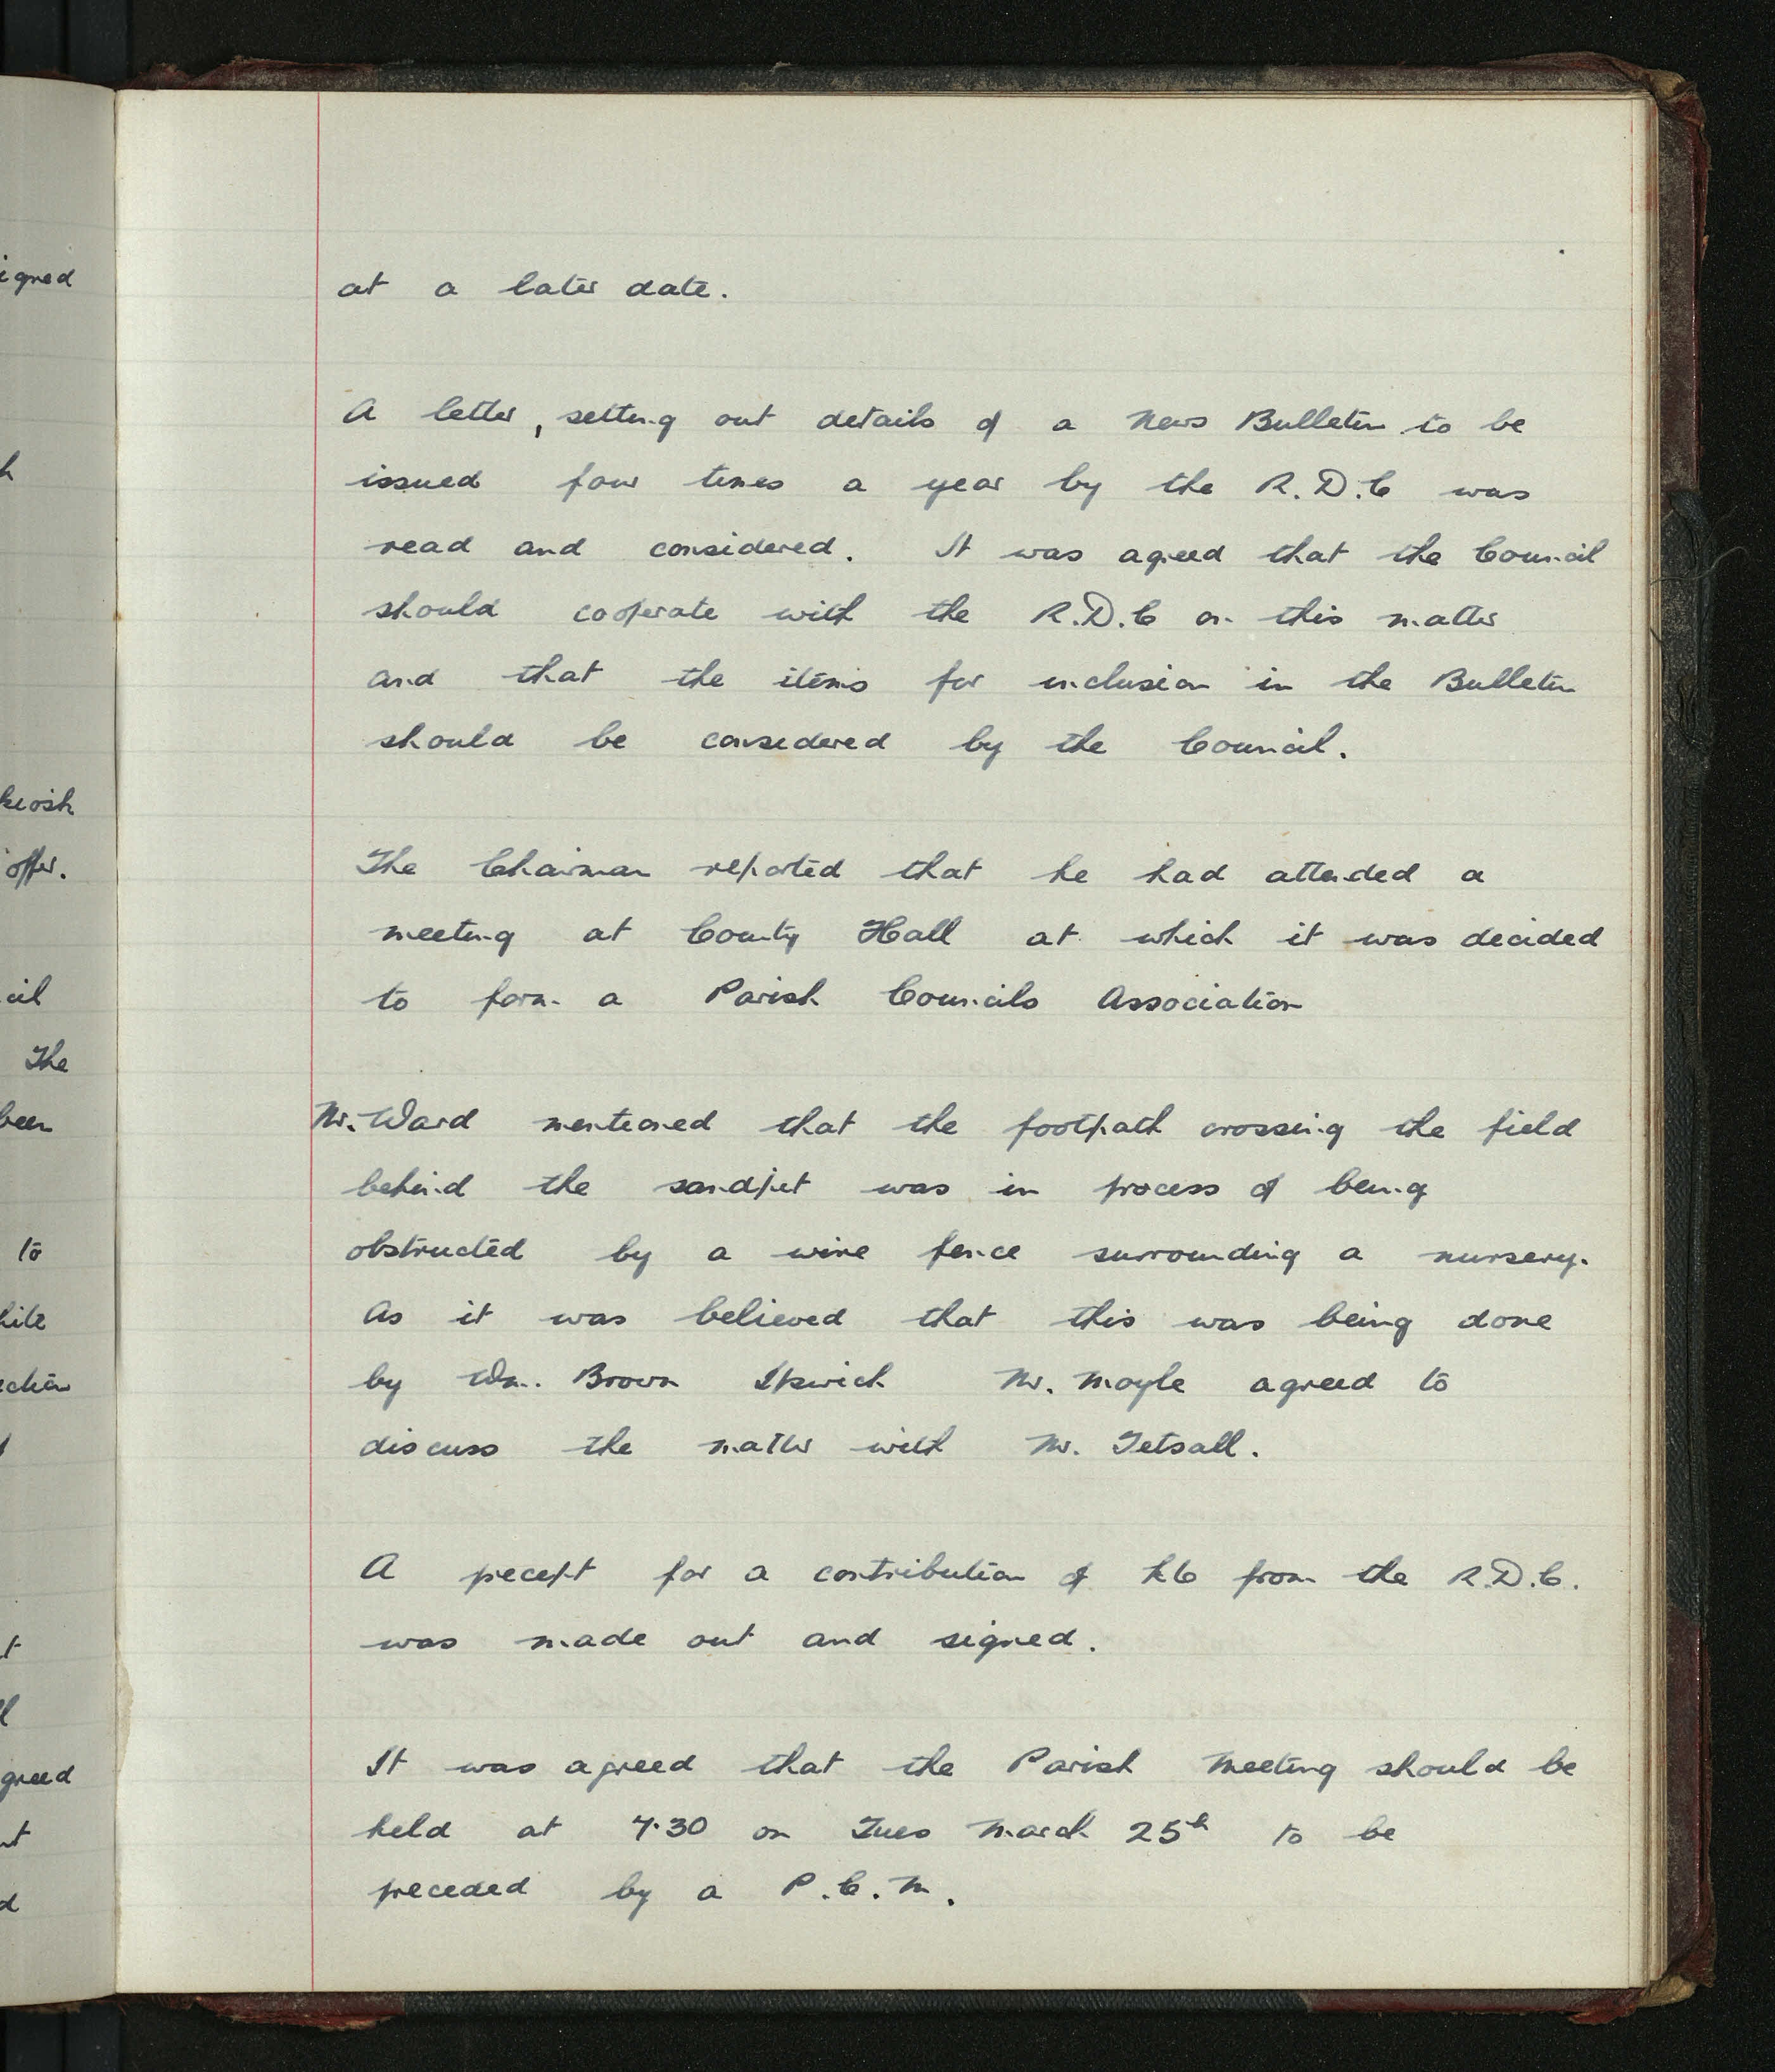 at a later date.
A letter, setting out details of a News Bulletin to be
issued four times a year by the R.D.C was
read and considered. It was agreed that the Council
should cooperate with the R.D.C on this matter
and that the items for inclusion in the Bulletin
should be considered by the Council.
The Chairman reported that he had attended a
meeting at County Hall at which it was decided
to form a Parish Councils Association
Mr. Ward mentioned that the footpath crossing the field
behind the sandpit was in process of being
obstructed by a wire fence surrounding a nursery.
As it was believed that this was being done
by Wm. Brown Ipswich Mr. Moyle agreed to
discuss the matter with Mr. Tetsall.
A precept for a contribution of from the R.D.C.
was made out and signed.
It was agreed that the Parish Meeting should be
held at 7.30 on Tues March 25th to be
preceded by a P.C.M.
igned
kiosk
offer.
cil
The
been
to
greed